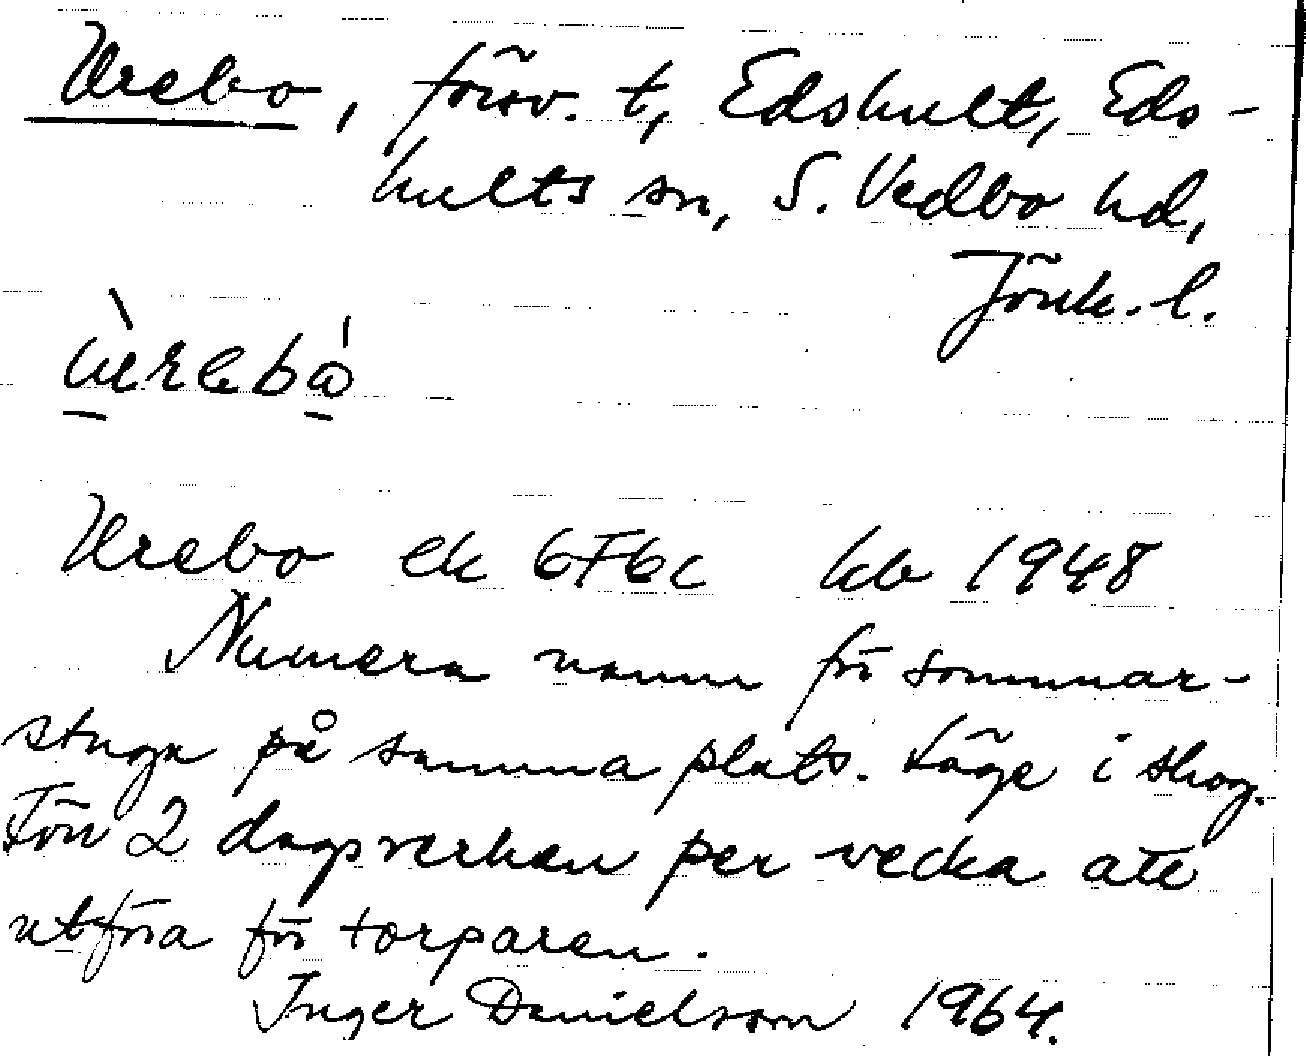 Vrebo, försv. t, Edshult, Eds-
hults sn, S. Vedbo hd,
Jönk. l.
Vrebo ek 6F6c kb 1948
Numera namn för sommar-
stuga på samma plats. Läge i skog.
Förr 2 dagsverken per vecka att
utföra för torparen.
Inger Danielsom 1964.